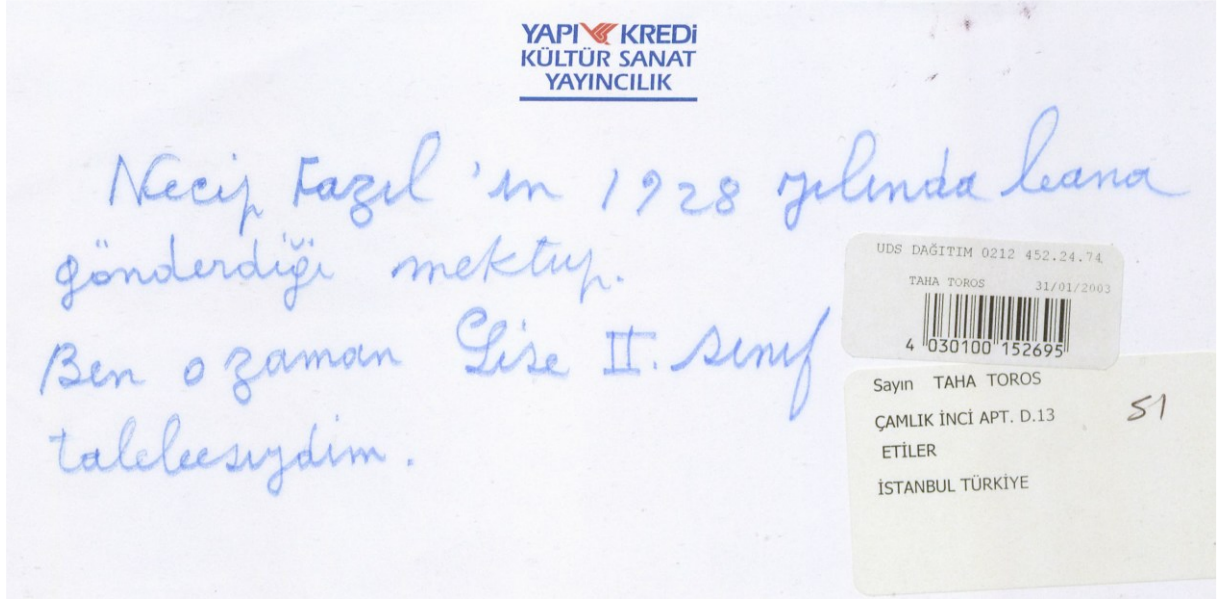 YAPI KREDi
KÜLTÜR SANAT
YAYINCILIK
Necip Fazıl'ın 1928 yılında bana
gönderdiği mektup.
Ben o zaman Lise II. sınıf
talebesiydim.
UDS DAĞITIM 0212 452.24.74
TAHA TOROS 31/01/2003
4 030100 152695
Sayın TAHA TOROS
ÇAMLIK İNCİ APT. D.13
51
ETİLER
İSTANBUL TÜRKİYE